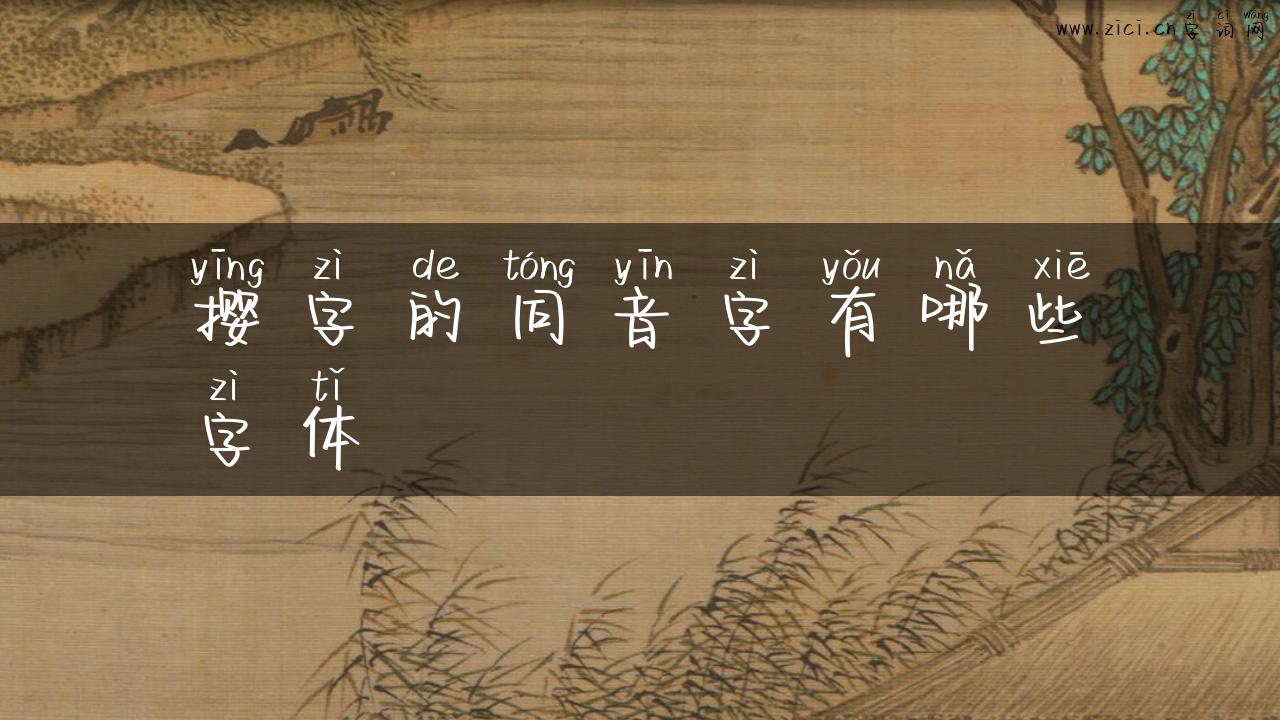 zì cí wǎng
www.zici.cn字词网
yīng zì de tóng yīn zì yǒu nǎ xiē
撄字的同音字有哪些
zì tǐ
字体